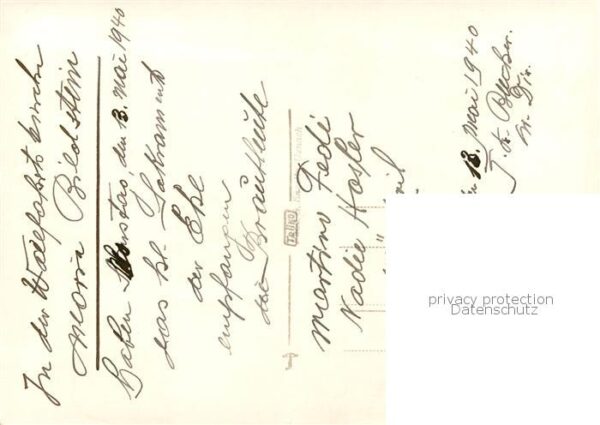 In der Wallfahrtskirche
Maria Bildstein
Haben Monstag, den 13. Mai 1940
das hl. Sakrament
der Ehe
empfangen
die Brautleute
Martino Fedi
Nadie Hosler
13. Mai 1940
privacy protection
Datenschutz